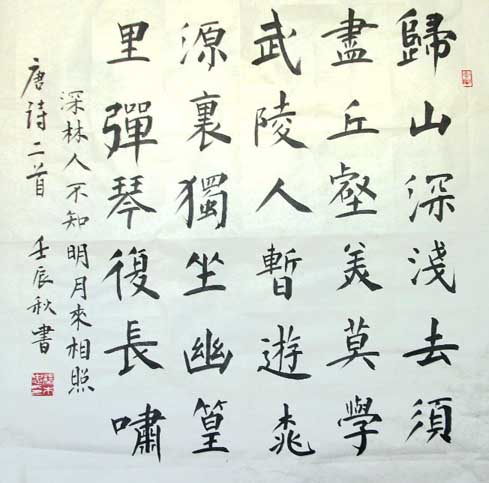 歸山深淺去須
盡丘壑美莫學
武陵人暫遊桃
源裏獨坐幽篁
里彈琴復長嘯
深林人不知明月來相照
唐詩二首 壬辰秋書